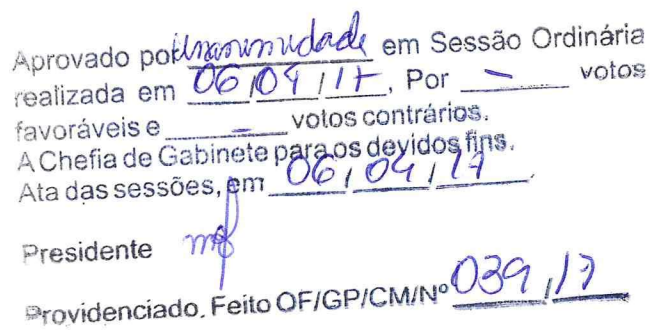 Aprovado por unanimidade em Sessão Ordinária
realizada em 06/04/17, Por - votos
favoráveis e - votos contrários.
A Chefia de Gabinete para os devidos fins.
Ata das sessões, em 06/04/17.
Presidente
Providenciado. Feito OF/GP/CM/Nº 039/17